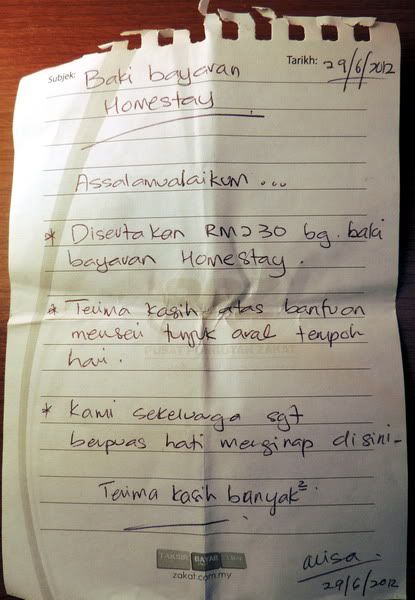 Subjek: Baki bayaran Tarikh: 29/6/2012
Homestay
Assalamualaikum ...
* Disertakan RM230 bg. baki
bayaran Homestay.
* Terima kasih atas bantuan
memberi tunjuk arah tempoh
hari.
PUSAT PUNGUTAN ZAKAT
* Kami sekeluarga sgt
berpuas hati menginap disini-
Terima kasih banyak².
TAKSIR BAYAR
zakat.com.my
alisa.
29/6/2012